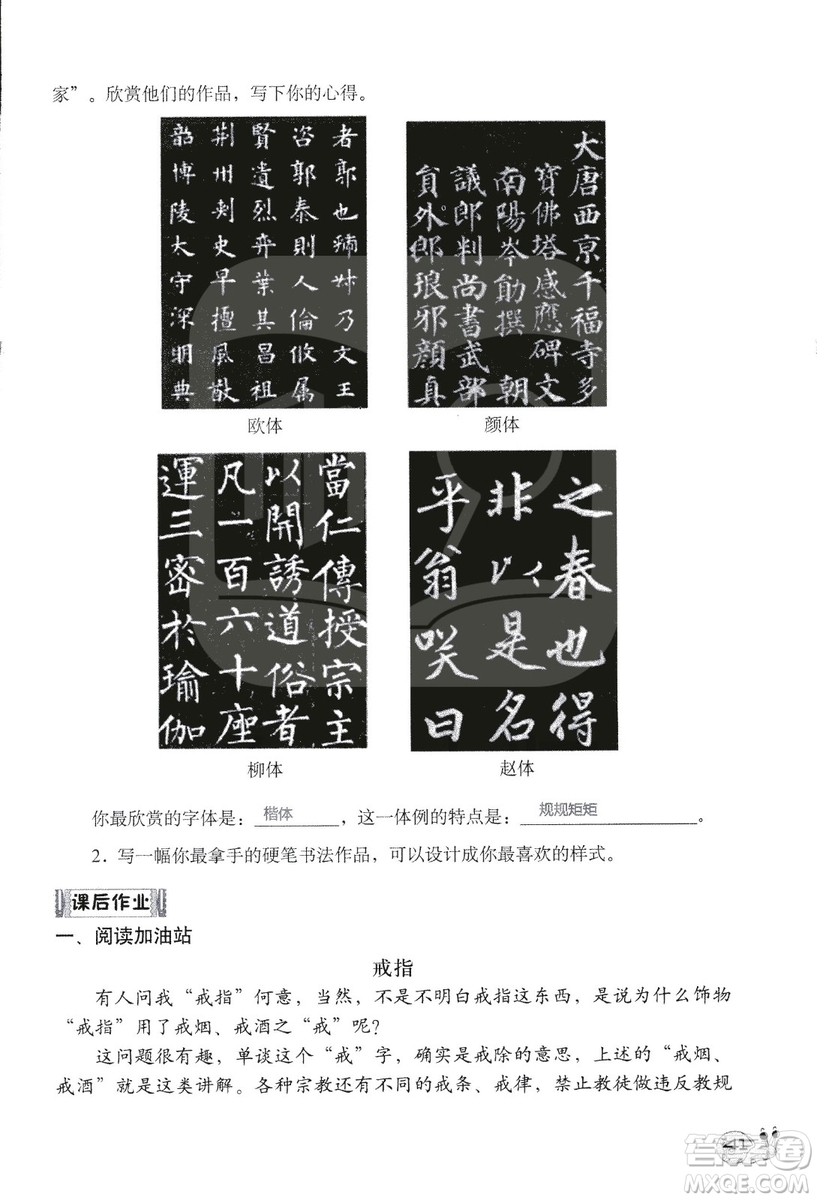 家”。欣赏他们的作品，写下你的心得。
者郭也稀妙乃文王
咨郭泰則人倫攸属
賢遺烈弈葉其昌祖
荆州刺史早擅風猷
韶博陵太守深明典
欧体
大唐西京千福寺多
寶佛塔感應碑文
南陽岑勛撰 朝
議郎判尚書武部
員外郎琅邪顔真
颜体
當仁傳授宗主
以開誘道俗者
凡一百六十座
運三密於瑜伽
柳体
之春也得
非以是名
乎翁咲曰
赵体
你最欣赏的字体是：楷体，这一体例的特点是：规规矩矩。
2．写一幅你最拿手的硬笔书法作品，可以设计成你最喜欢的样式。
课后作业
一、阅读加油站
戒指
有人问我“戒指”何意，当然，不是不明白戒指这东西，是说为什么饰物
“戒指”用了戒烟、戒酒之“戒”呢？
这问题很有趣，单谈这个“戒”字，确实是戒除的意思，上述的“戒烟、
戒酒”就是这类讲解。各种宗教还有不同的戒条、戒律，禁止教徒做违反教规
41
答案卷
MXQE.COM